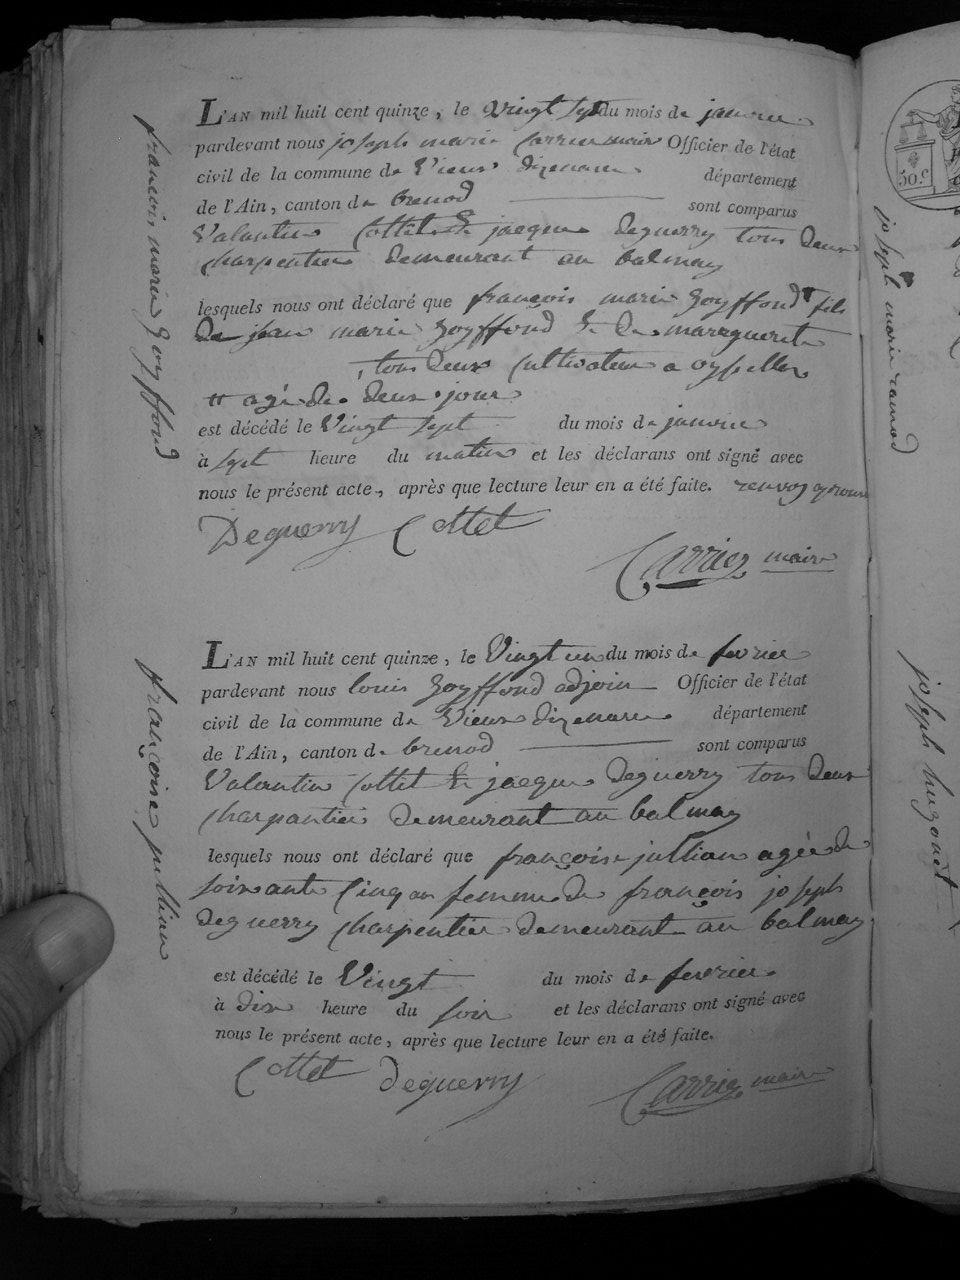 L'AN mil huit cent quinze, le vingt sept du mois de janvier
pardevant nous joseph marie Carrier maire Officier de l'état
civil de la commune de Vieux dizenave département
de l'Ain, canton de brenod sont comparus
Valantin Cottet & jacque deguerry tous deux
charpentier demeurant au balmay
lesquels nous ont déclaré que françois marie goyffond fils
de jean marie goyffond & de marreguerite
tous deux cultivateur a oyssellaz
agé de deux jour
est décédé le Vingt sept du mois de janvier
à sept heure du matin et les déclarans ont signé avec
nous le présent acte, après que lecture leur en a été faite. renvoy aprouvé
Deguerry Cottet
Carrier maire
françois marie goyffond
L'AN mil huit cent quinze, le Vingt un du mois de fevrier
pardevant nous louis goyffond adjoin Officier de l'état
civil de la commune de Vieux dizenave département
de l'Ain, canton de brenod sont comparus
Valantin Cottet & jacque deguerry tous deux
charpantier demeurant au balmay
lesquels nous ont déclaré que françoise jullian agée de
soixante Cinq an femme de françois joseph
deguerry charpentier demeurant au balmay
est décédé le Vingt du mois de fevrier
à dix heure du soir et les déclarans ont signé avec
nous le présent acte, après que lecture leur en a été faite.
Cottet deguerry
Carrier maire
françoise jullian
50 c.
joseph marie ramod
joseph hugonet